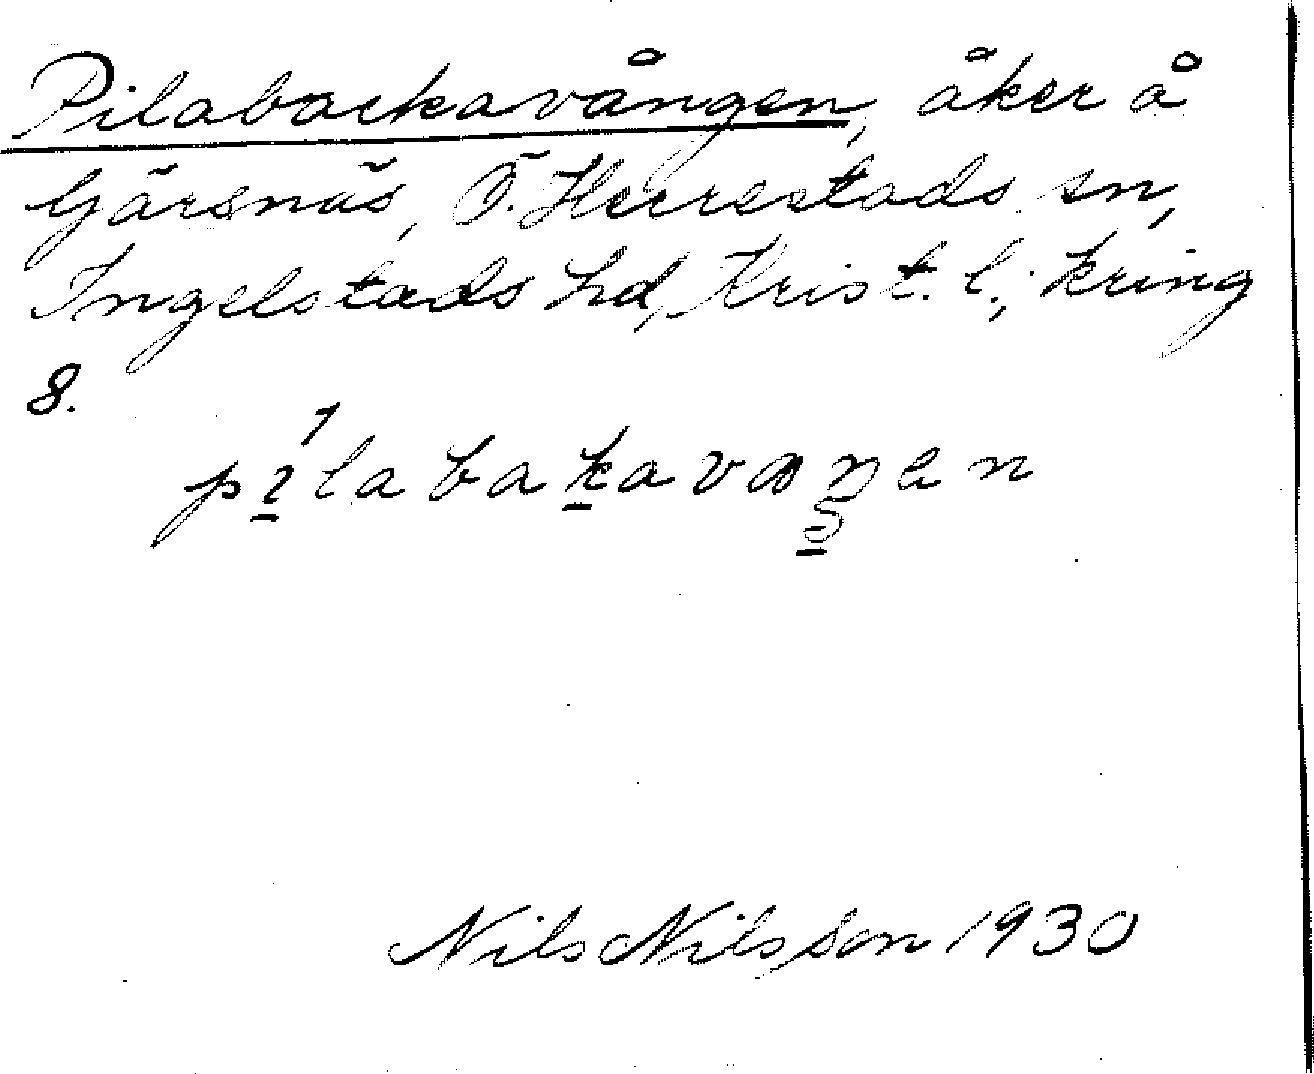 Pilabackavången, åker å
Gärsnäs, Ö. Herrestads sn,
Ingelstads hd, Krist. l.; kring
8.
pɩ̱́labaḵavaŋen
Nils Nilsson 1930